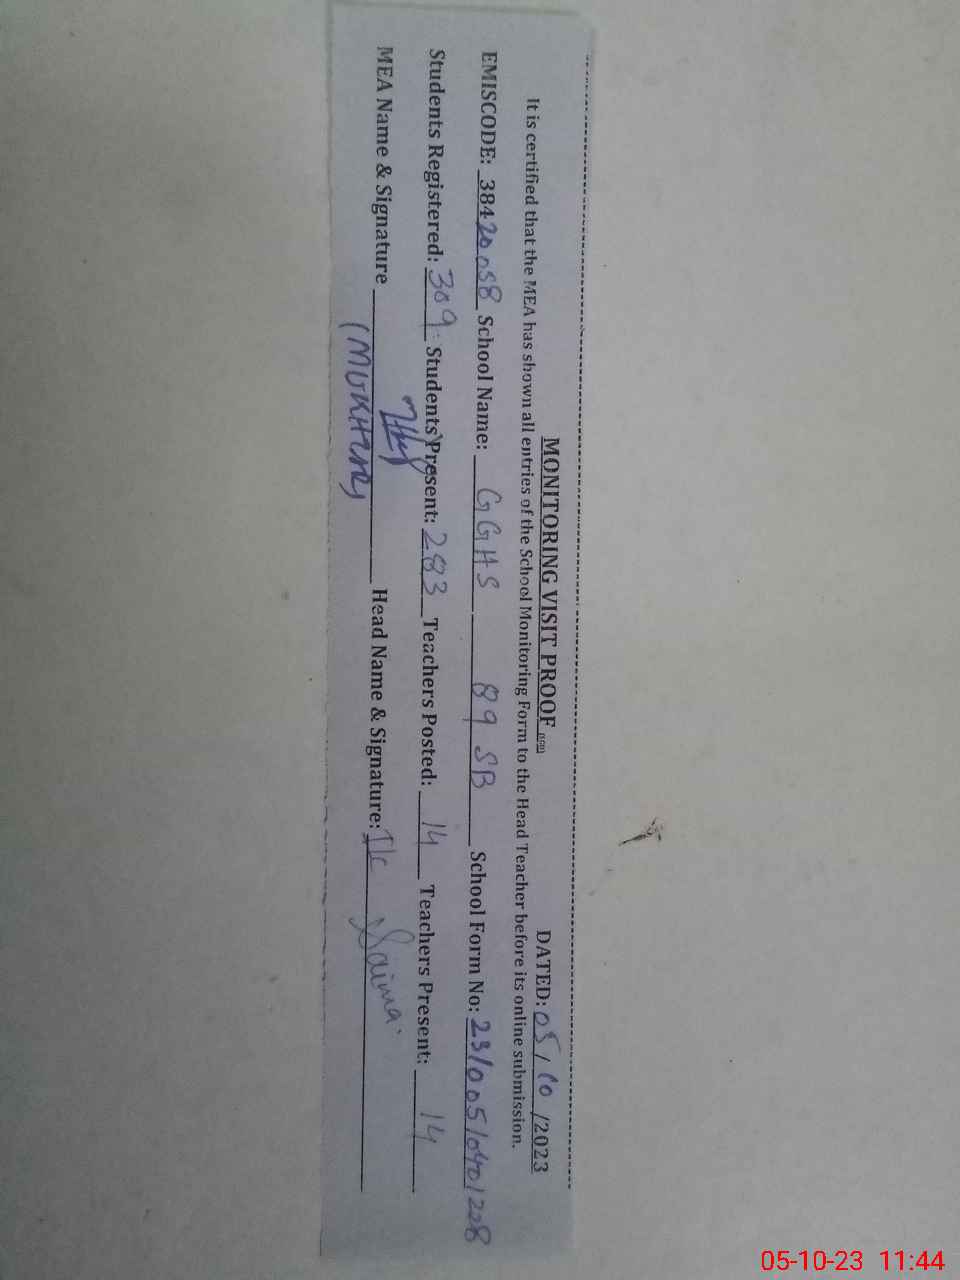 MONITORING VISIT PROOF
DATED: 05/10/2023
It is certified that the MEA has shown all entries of the School Monitoring Form to the Head Teacher before its online submission.
EMISCODE: 38420058 School Name: GGHS 89 SB School Form No:
Students Registered: 309 Students Present: 283 Teachers Posted: 14 Teachers Present: 14
MEA Name & Signature Head Name & Signature: I/c Saima.
05-10-23 11:44